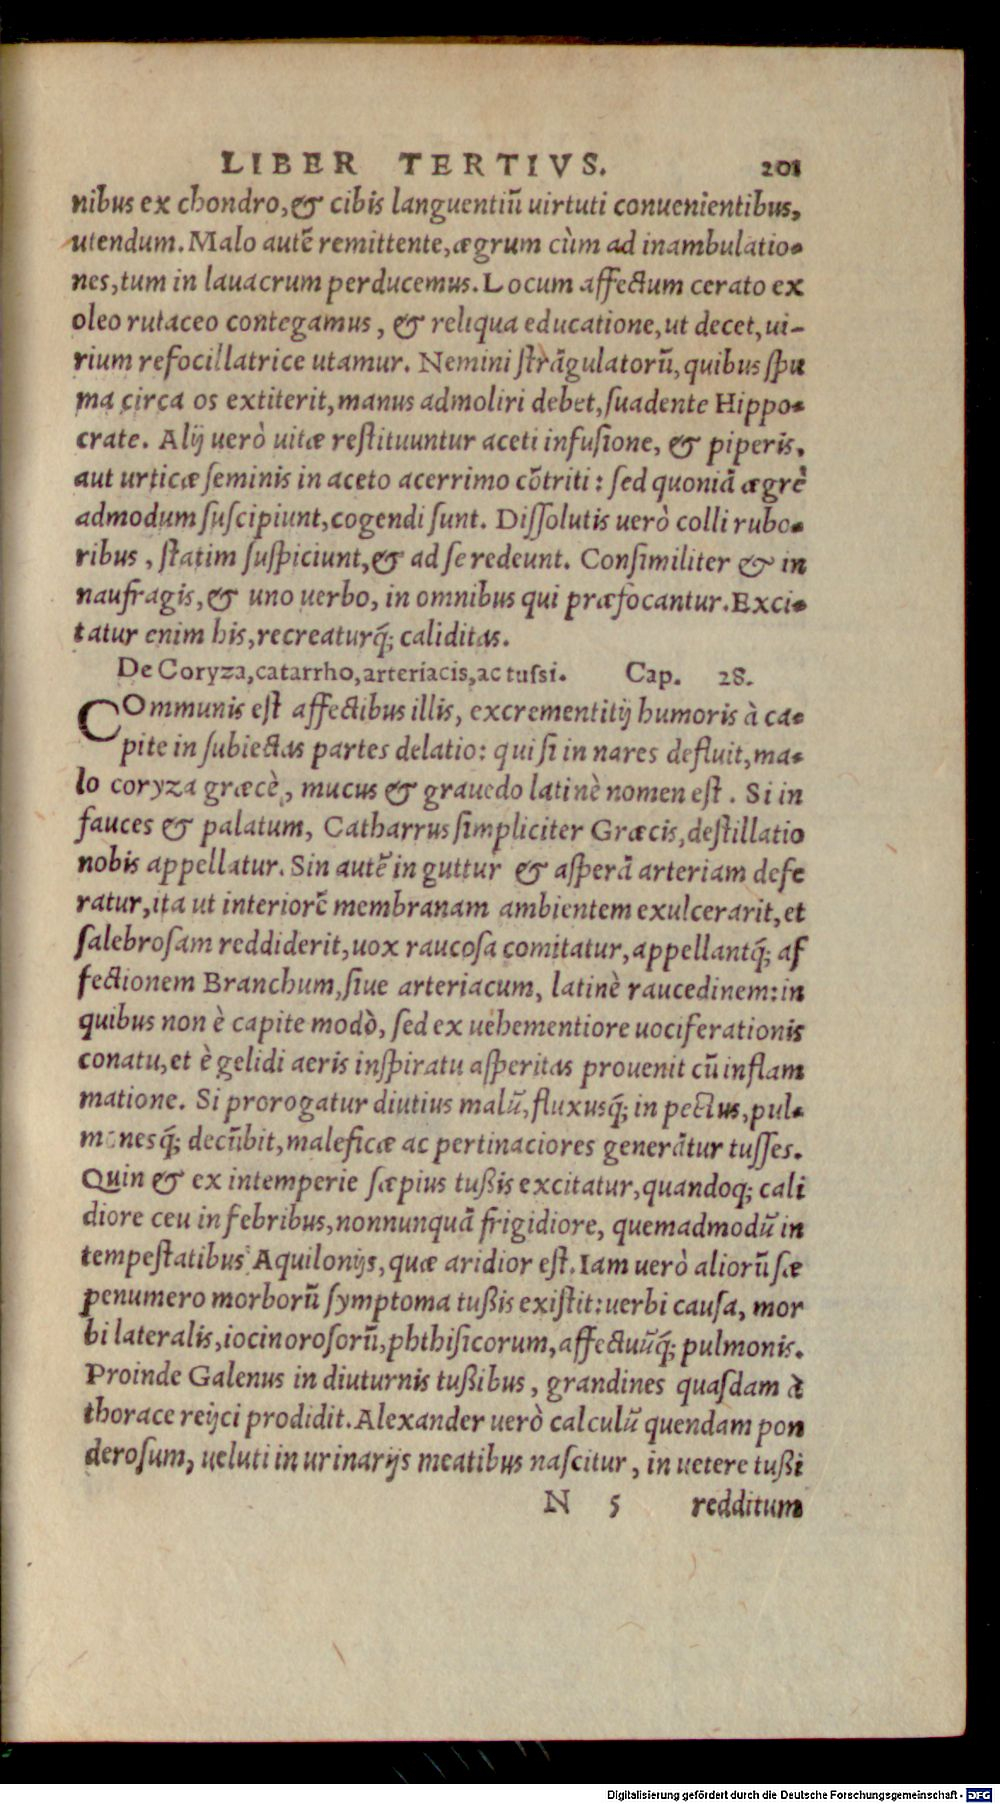 LIBER TERTIVS. 201
nibus ex chondro, & cibis languentiũ uirtuti conuenientibus,
utendum. Malo autẽ remittente, ægrum cùm ad inambulatio-
nes, tum in lauacrum perducemus. Locum affectum cerato ex
oleo rutaceo contegamus, & reliqua educatione, ut decet, ui-
rium refocillatrice utamur. Nemini strãgulatorũ, quibus spu
ma circa os extiterit, manus admoliri debet, suadente Hippo-
crate. Alij uerò uitæ restituuntur aceti infusione, & piperis,
aut urticæ seminis in aceto acerrimo cõtriti: sed quoniã ægrè
admodum suscipiunt, cogendi sunt. Dissolutis uerò colli rubo-
ribus, statim suspiciunt, & ad se redeunt. Consimiliter & in
naufragis, & uno uerbo, in omnibus qui præfocantur. Exci-
tatur enim his, recreaturq́; caliditas.
De Coryza, catarrho, arteriacis, ac tussi. Cap. 28.
COmmunis est affectibus illis, excrementitij humoris à ca-
pite in subiectas partes delatio: qui si in nares defluit, ma-
lo coryza græcè, mucus & grauedo latinè nomen est. Si in
fauces & palatum, Catharrus simpliciter Græcis, destillatio
nobis appellatur. Sin autẽ in guttur & asperã arteriam defe
ratur, ita ut interiorẽ membranam ambientem exulcerarit, et
salebrosam reddiderit, uox raucosa comitatur, appellantq́; af
fectionem Branchum, siue arteriacum, latinè raucedinem: in
quibus non è capite modò, sed ex uehementiore uociferationis
conatu, et è gelidi aeris inspiratu asperitas prouenit cũ inflam
matione. Si prorogatur diutius malũ, fluxusq́; in pectus, pul-
monesq́; decũbit, maleficæ ac pertinaciores generãtur tusses.
Quin & ex intemperie sæpius tußis excitatur, quandoq; cali
diore ceu in febribus, nonnunquã frigidiore, quemadmodũ in
tempestatibus Aquilonijs, quæ aridior est. Iam uerò aliorũ sæ
penumero morborũ symptoma tußis existit: uerbi causa, mor
bi lateralis, iocinorosorũ, phthisicorum, affectuũq́; pulmonis.
Proinde Galenus in diuturnis tußibus, grandines quasdam à
thorace reijci prodidit. Alexander uerò calculũ quendam pon
derosum, ueluti in urinarijs meatibus nascitur, in uetere tußi
N 5 redditum
Digitalisierung gefördert durch die Deutsche Forschungsgemeinschaft - DFG